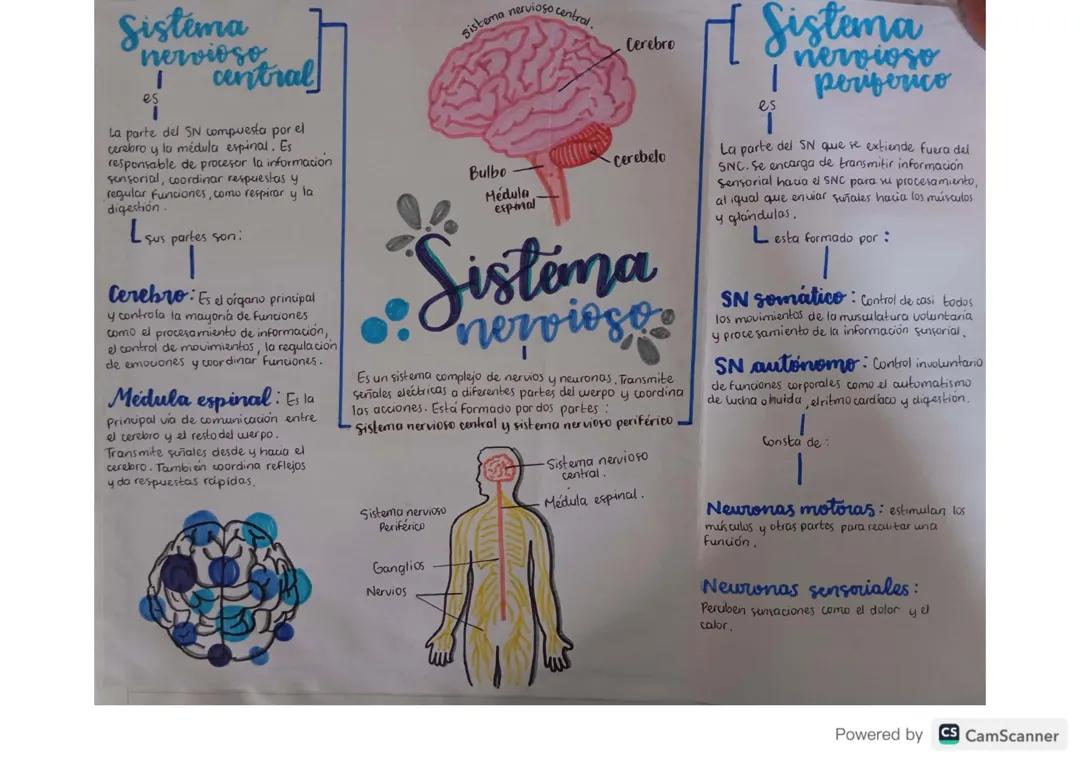 Sistema
nervioso
central
es
La parte del SN compuesta por el
cerebro y la médula espinal. Es
responsable de procesar la información
sensorial, coordinar respuestas y
regular funciones, como respirar y la
digestión.
sus partes son:
Cerebro: Es el órgano principal
y controla la mayoría de funciones
como el procesamiento de información,
el control de movimientos, la regulación
de emociones y coordinar funciones.
Médula espinal: Es la
principal vía de comunicación entre
el cerebro y el resto del cuerpo.
Transmite señales desde y hacia el
cerebro. También coordina reflejos
y da respuestas rápidas.
Sistema nervioso central.
Cerebro
cerebelo
Bulbo
Médula
espinal
Sistema
nervioso
Es un sistema complejo de nervios y neuronas. Transmite
señales eléctricas a diferentes partes del cuerpo y coordina
las acciones. Está formado por dos partes:
Sistema nervioso central y sistema nervioso periférico
Sistema nervioso
central.
Médula espinal.
Sistema nervioso
Periférico
Ganglios
Nervios
Sistema
nervioso
periferico
es
La parte del SN que se extiende fuera del
SNC. Se encarga de transmitir información
sensorial hacia el SNC para su procesamiento,
al igual que enviar señales hacia los músculos
y glándulas.
esta formado por:
SN somático: Control de casi todos
los movimientos de la musculatura voluntaria
y procesamiento de la información sensorial.
SN autónomo: Control involuntario
de funciones corporales como el automatismo
de lucha o huida, el ritmo cardíaco y digestión.
Consta de:
Neuronas motoras: estimulan los
músculos y otras partes para realitar una
función.
Neuronas sensoriales:
Perciben sensaciones como el dolor y el
calor.
Powered by CS CamScanner